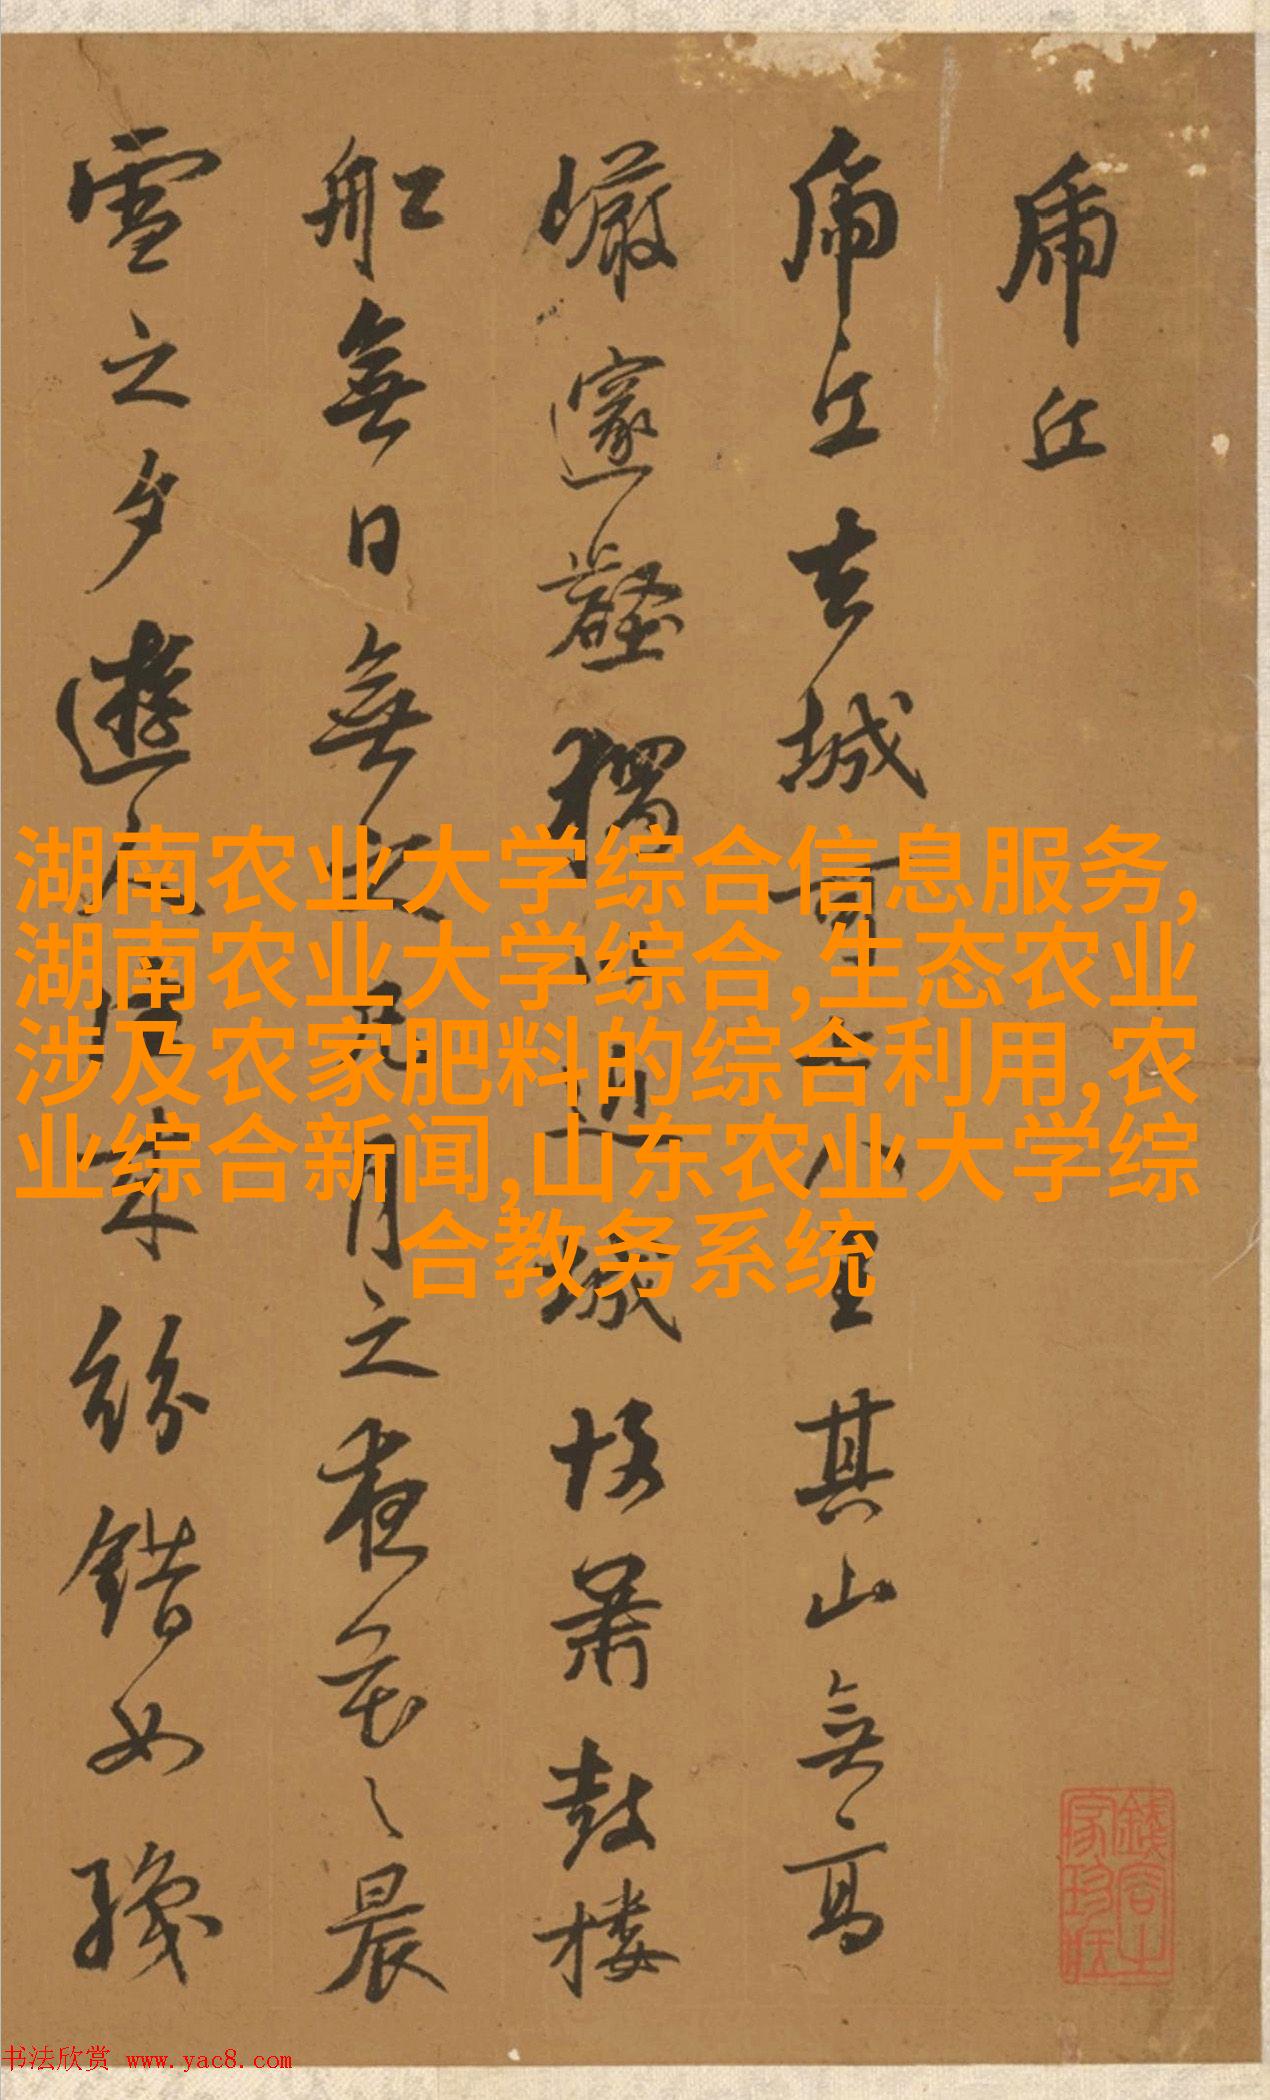 虎丘
虎丘去城可七八里其山無高
巖邃壑獨以近城故簫鼓樓
船無日無之凡月之夜花之晨
雪之夕遊人往來紛錯如綺
湖南农业大学综合信息服务,
湖南农业大学综合,生态农业
涉及农家肥料的综合利用,农
业综合新闻,山东农业大学综
合教务系统
书法欣赏 www.yac8.com